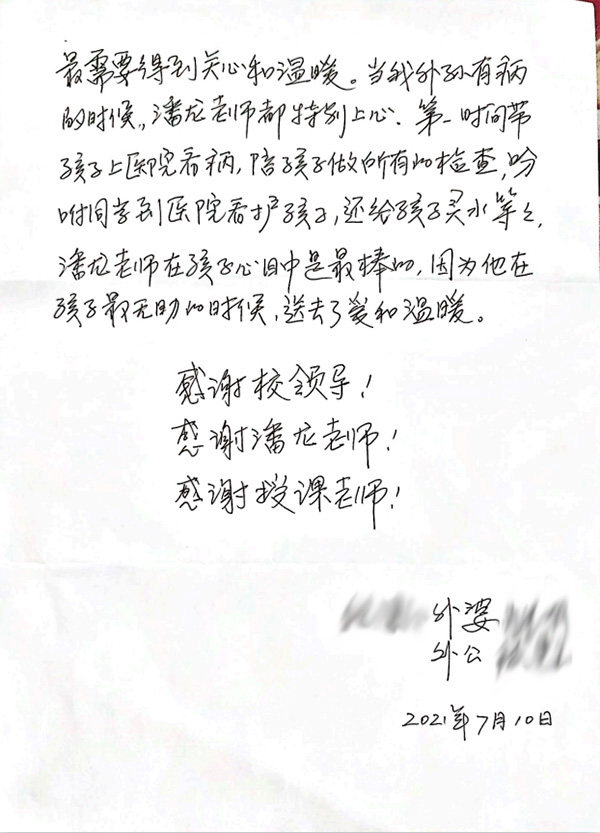 最需要得到关心和温暖。当我外孙有病
的时候，潘龙老师都特别上心、第一时间带
孩子上医院看病，陪孩子做所有的检查，吩
咐同学到医院看护孩子，还给孩子买水等等，
潘龙老师在孩子心目中是最棒的，因为他在
孩子最无助的时候，送去了爱和温暖。
感谢校领导！
感谢潘龙老师！
感谢授课老师！
外婆
外公
2021年7月10日